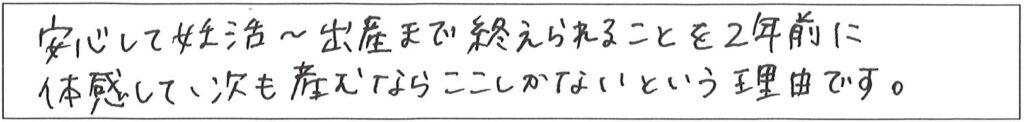 安心して妊活～出産まで終えられることを2年前に
体感して、次も産むならここしかないという理由です。